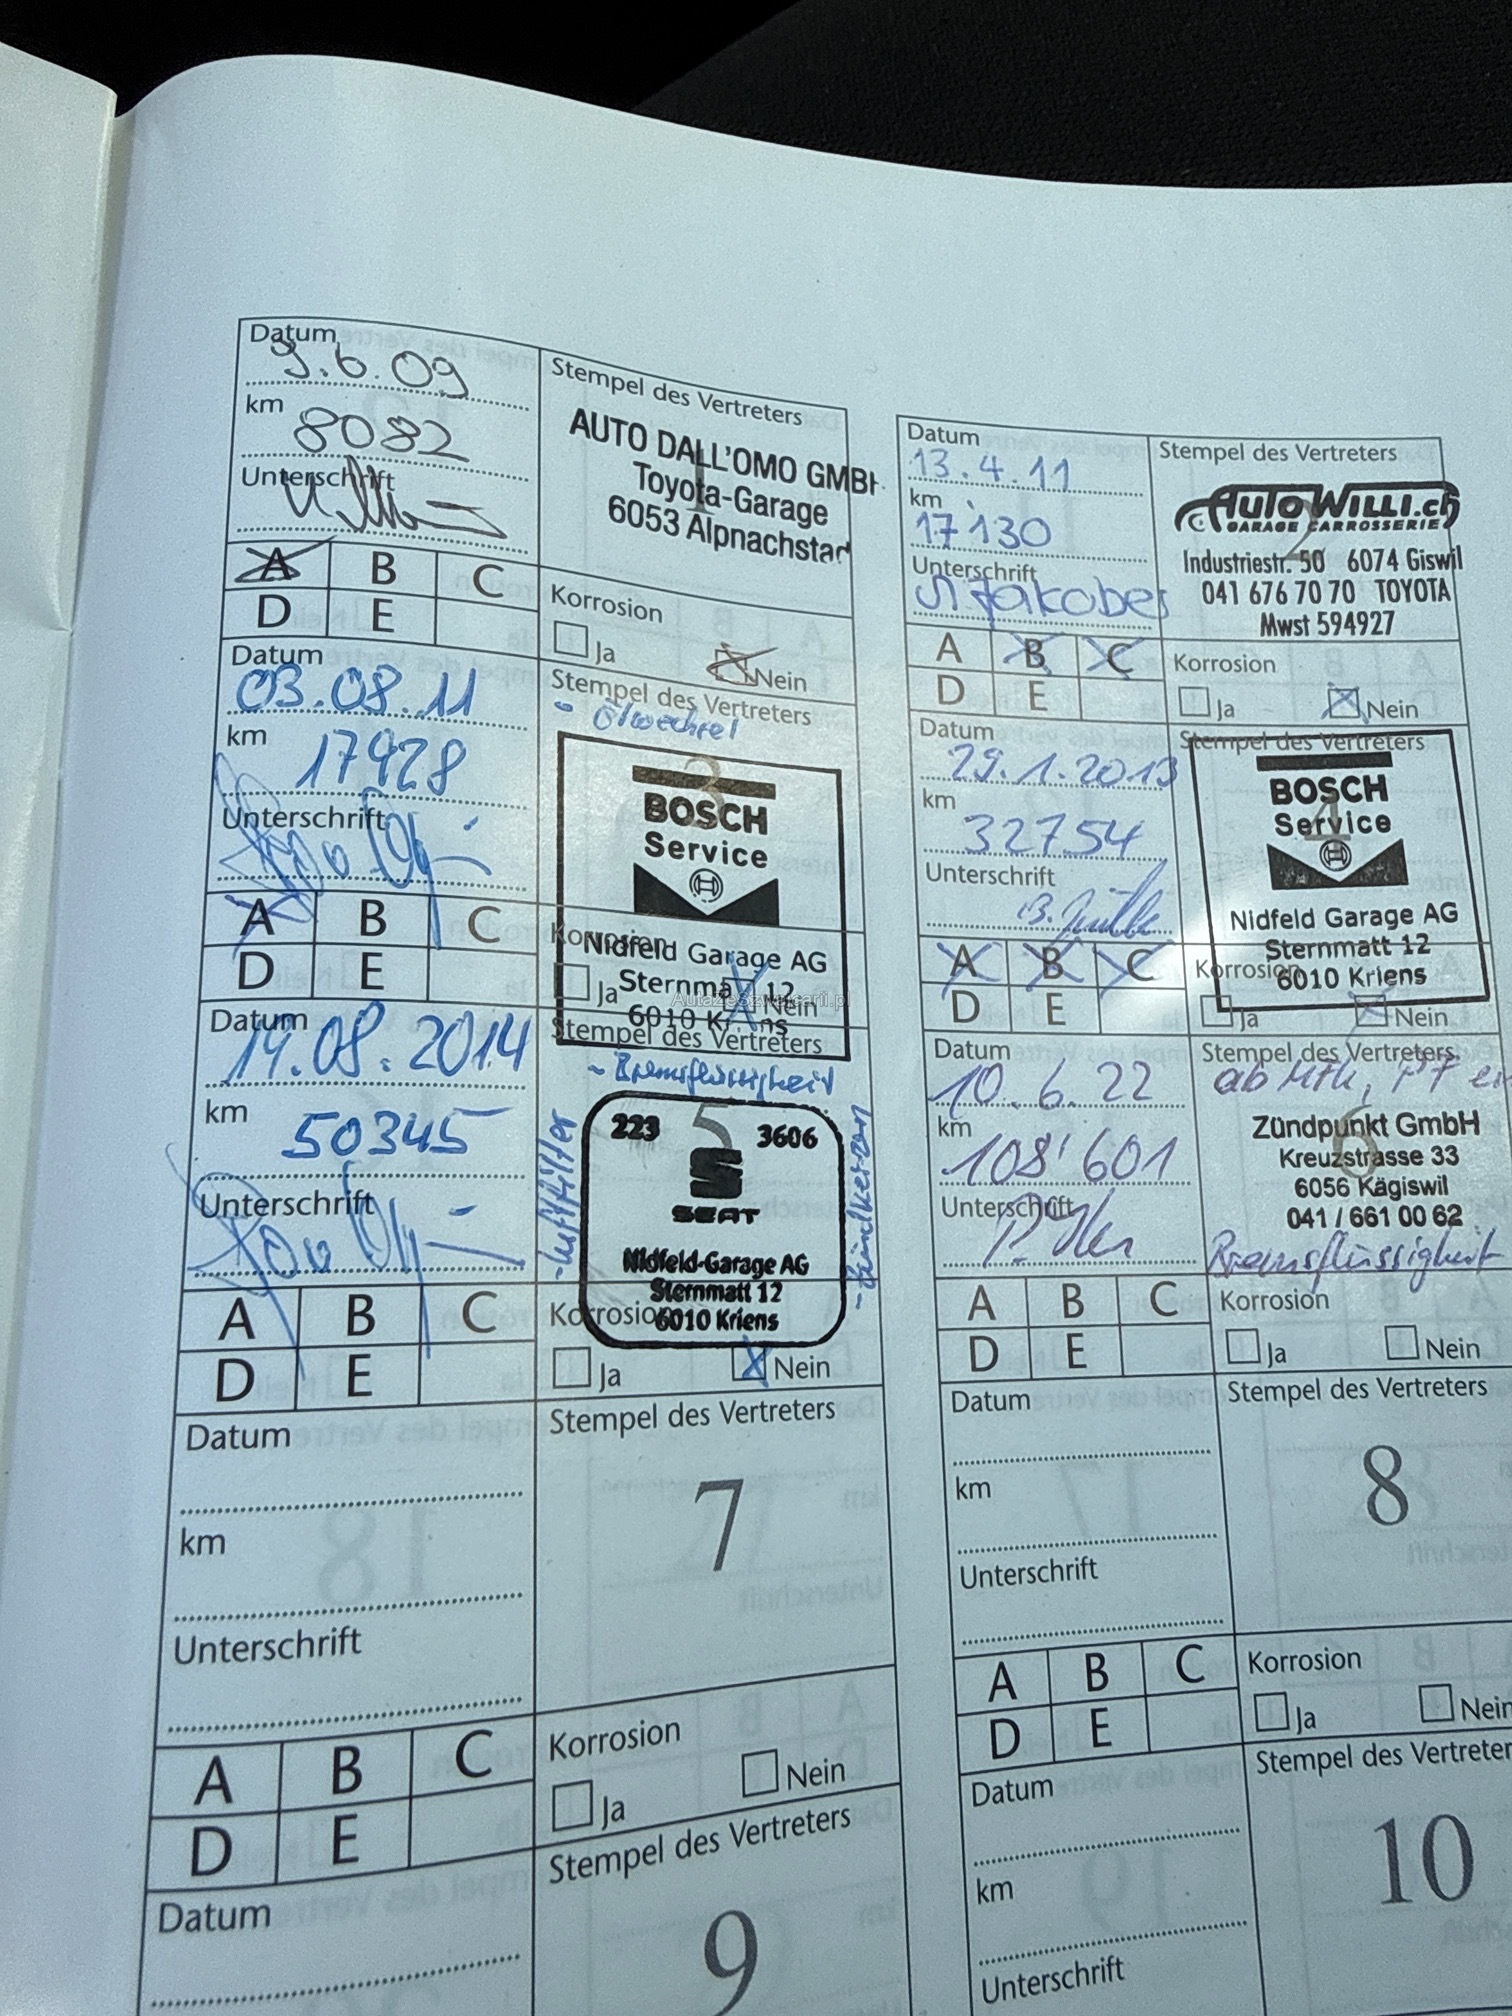 Datum
9.6.09
km
8082
Unterschrift
A B C
D E
Stempel des Vertreters
1
AUTO DALL'OMO GMBH
Toyota-Garage
6053 Alpnachstad
Korrosion
Ja Nein
Datum
13.4.11
km
17130
Unterschrift
A B C
D E
Stempel des Vertreters
2
AUTO WILLI.ch
GARAGE CARROSSERIE
Industriestr. 50 6074 Giswil
041 676 70 70 TOYOTA
Mwst 594927
Korrosion
Ja Nein
Datum
03.08.11
km
17928
Unterschrift
A B C
D E
Stempel des Vertreters
- Ölwechsel
3
BOSCH
Service
Nidfeld Garage AG
Sternmatt 12
6010 Kriens
Korrosion
Ja Nein
AutazeSzwajcarii.pl
Datum
29.1.2013
km
32754
Unterschrift
A B C
D E
Stempel des Vertreters
4
BOSCH
Service
Nidfeld Garage AG
Sternmatt 12
6010 Kriens
Korrosion
Ja Nein
Datum
19.08.2014
km
50345
Unterschrift
A B C
D E
Stempel des Vertreters
- Bremsflüssigkeit
- Luftfilter
- Zündkerzen
5
223 3606
SEAT
Nidfeld-Garage AG
Sternmatt 12
6010 Kriens
Korrosion
Ja Nein
Datum
10.6.22
km
108'601
Unterschrift
A B C
D E
Stempel des Vertreters
ab
6
Zündpunkt GmbH
Kreuzstrasse 33
6056 Kägiswil
041 / 661 00 62
Bremsflüssigkeit
Korrosion
Ja Nein
Datum
km
Unterschrift
A B C
D E
Stempel des Vertreters
7
Korrosion
Ja Nein
Datum
km
Unterschrift
A B C
D E
Stempel des Vertreters
8
Korrosion
Ja Nein
Datum
Stempel des Vertreters
9
Datum
km
Unterschrift
Stempel des Vertreter
10